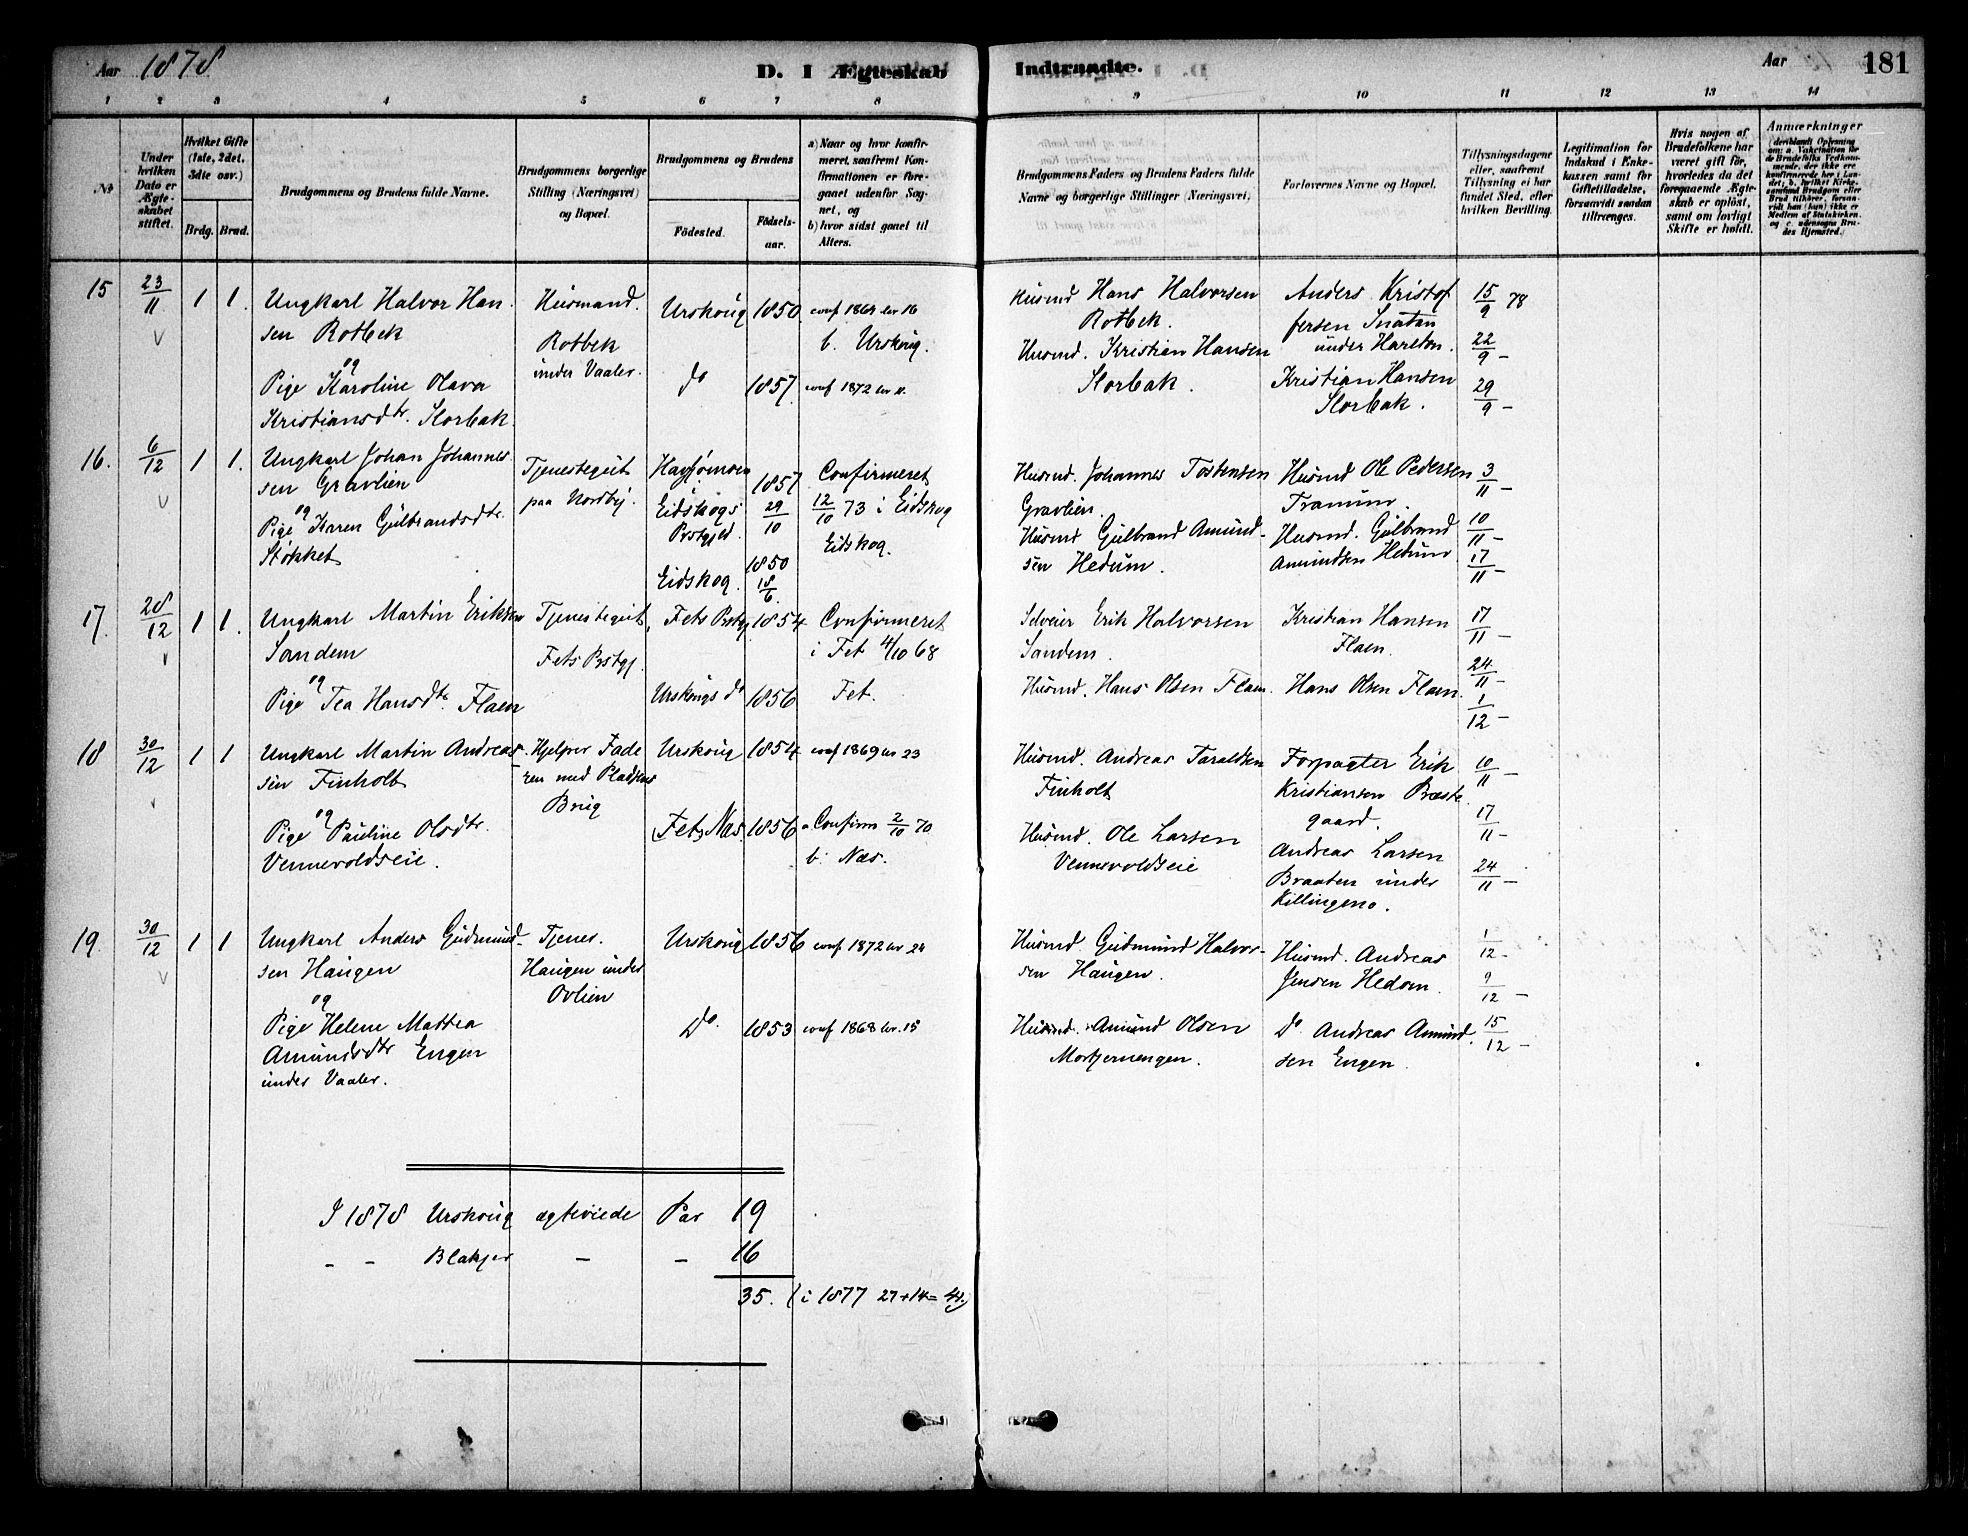 Aar 1878
D. I Ægteskab Indtraadte.
Aar
181
1 2 3 4 5 6 7 8 9 10 11 12 13 14
No
Under hvilken Dato er Ægteskabet stiftet.
Hvilket Gifte (1ste, 2det, 3dte osv.)
Brdg. Brud.
Brudgommens og Brudens fulde Navne.
Brudgommens borgerlige Stilling (Næringsvei) og Bopæl.
Brudgommens og Brudens
Födested.
Födselsaar.
a) Naar og hvor konfirmeret, saafremt Konfirmationen er foregaaet udenfor Sognet, og
b) hvor sidst gaaet til Alters.
Brudgommens Faders og Brudens Faders fulde Navne og borgerlige Stillinger (Næringsvei)
Forlovernes Navne og Bopæl.
Tillysningsdagene eller, saafremt Tillysning ei har fundet Sted, efter hvilken Bevilling.
Legitimation for Indskud i Enkekassen samt for Giftetilladelse, forsaavidt saadan tiltrænges.
Hvis nogen af Brudefolkene har været gift för, hvorledes da det foregaaende Ægteskab er oplöst, samt om lovligt Skifte er holdt.
Anmærkninger
15 23/11 1 1. Ungkarl Halvor Han
sen Rotbek
og
Pige Karoline Olava
Kristiansdtr Slorbak
Husmand.
Rotbek
under Vaaler.
Urskoug 1850 conf 1864 br 16
b. Urskoug.
do 1857. conf 1872
Husmd Hans Halvorsen
Rotbek.
Husmd. Kristian Hansen
Slorbak.
Anders Kristof
fersen
under
Kristian Hansen
Slorbak.
15/9 78
22/9 –
29/9 –
16. 6/12 1 1. Ungkarl Johan Johannes
sen Gravlien
og
Pige Karen Gulbrandsdtr.
Stokket
Tjenestegut
paa Nordby.
Eidskogs
Prstgjeld
Eidskog.
1857
29/10
1850
18/6
Confirmeret
12/10 73 i Eidskog
Eidskog.
Husmd. Johannes Tostensen
Gravlien.
Husmd Gulbrand Amund-
sen Hedum.
Husmd Ole Pedersen
Husmd. Gulbrand
Amundsen Hedum
3/11 –
10/11 –
17/11 –
17. 28/12 1 1. Ungkarl Martin Eriksen
Sandem
og
Pige Tea Hansdtr. Flaen
Tjenestegut,
Fets Prstgj.
Fets Prstgj 1854
Urskougs do 1856
Confirmeret
i Fet 4/10 68
Fet.
Selveier Erik Halvorsen
Sandem.
Husmd. Hans Olsen Flaen.
Kristian Hansen
Flaen.
Hans Olsen Flaen.
17/11 –
24/11 –
1/12 –
18 30/12 1 1 Ungkarl Martin Andreas-
sen Finholt
og
Pige Pauline Olsdtr.
Vennevoldseie.
Hjelper Fade
ren med Pladsens
Brug
Urskoug 1854 conf 1869 br 23
Fets, Næs. 1856 a. Confirm 2/10 70
b. Næs.
Husmd. Andreas Taraldsen
Finholt
Husmd. Ole Larsen
Vennevoldseie
Forpagter Erik
Kristiansen Præste
gaard.
Andreas Larsen
Braaten under
Killingmo.
10/11 –
17/11 –
24/11 –
19. 30/12 1 1 Ungkarl Anders Gudmund-
sen Haugen
og
Pige Helene Mattea
Amundsdtr Engen
under Vaaler.
Tjener.
Haugen under
Ovlien
Urskoug 1856 conf 1872 br 24
Do. 1853 conf 1868 br. 15
Husmd. Gudmund Halvor-
sen Haugen.
Husmd. Amund Olsen
Husmd. Andreas
Jensen Hedom.
Do Andreas Amund.
sen Engen.
1/12 –
9/12 –
15/12 –
I 1878 Urskoug ægteviede Par 19
– – Blakjer – – 16
35. (i 1877 27+14=41.)